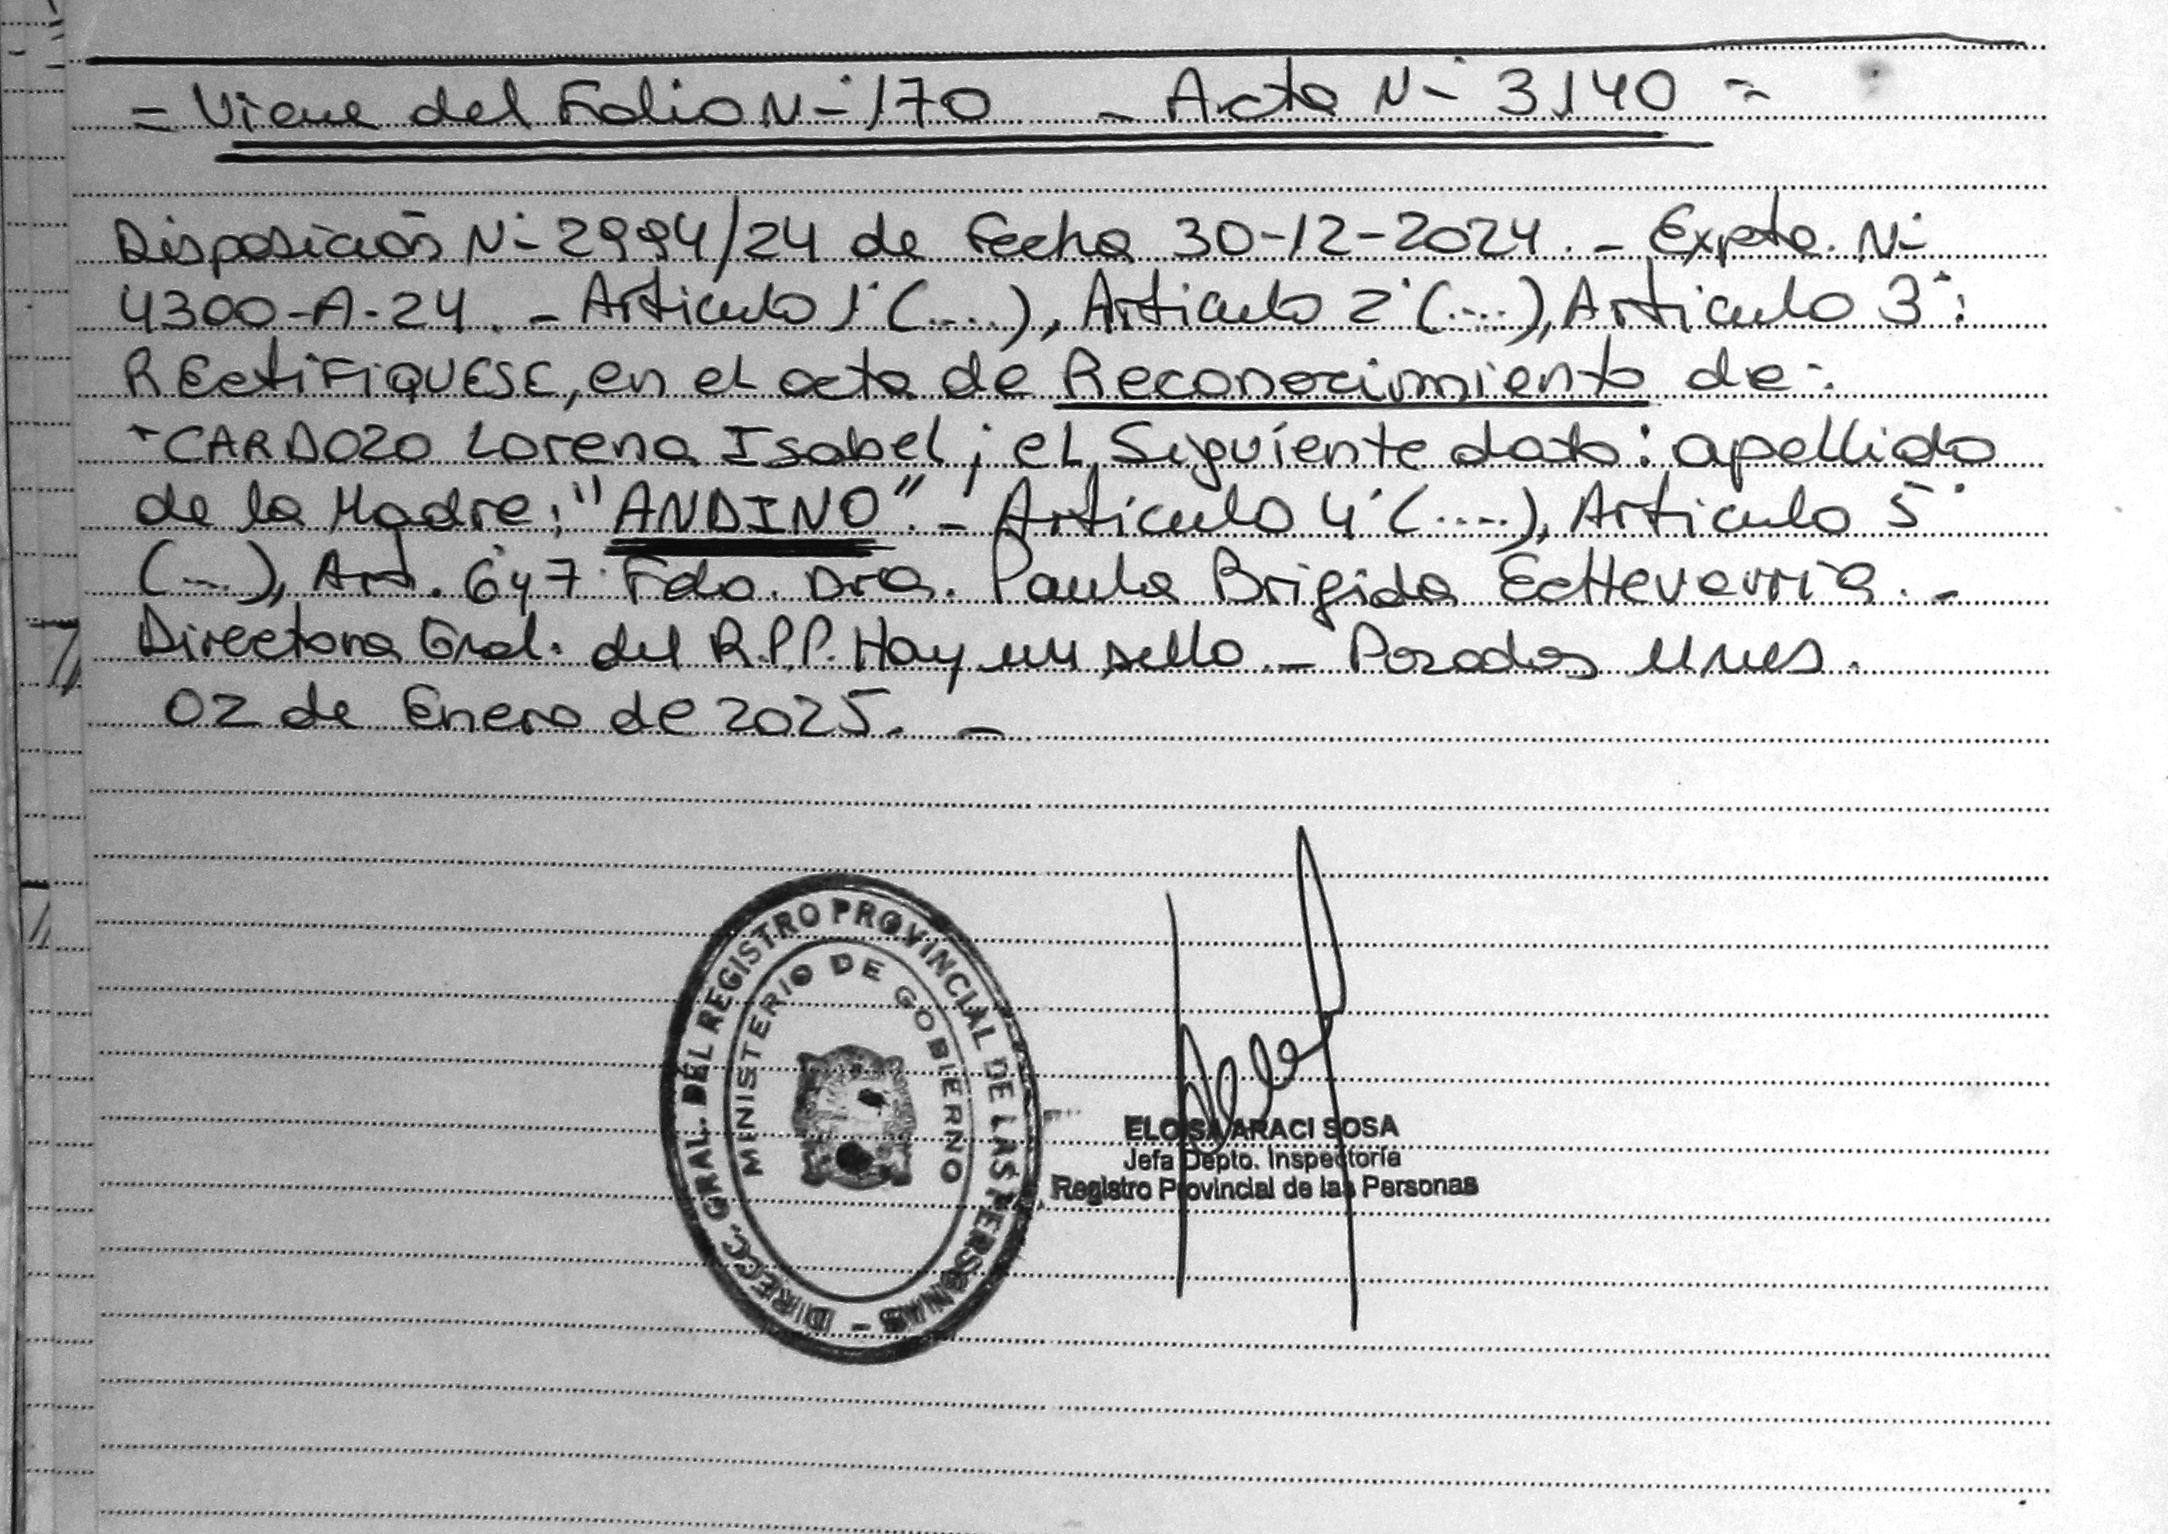 = Viene del Folio N- 170 - Acta N- 3140 =
Disposición N- 2994/24 de fecha 30-12-2024. - Expte. N-
4300-A-24. - Articulo 1° (....), Articulo 2° (....), Articulo 3°:
RECTIFIQUESE, en el acta de Reconocimiento de:
CARDOZO Lorena Isabel; el Siguiente dato: apellido
de la Madre; "ANDINO". - Artículo 4° (....), Articulo 5°
(...), Art. 6 y 7 Fdo. Dra. Paula Brigida Echeverria. -
Directora Gral. del R.P.P. Hay un sello. - Posadas Mnes.
02 de Enero de 2025. -
DIRECC. GRAL. DEL REGISTRO PROVINCIAL DE LAS PERSONAS -
MINISTERIO DE GOBIERNO
ELOISA ARACI SOSA
Jefa Depto. Inspectoría
Registro Provincial de las Personas